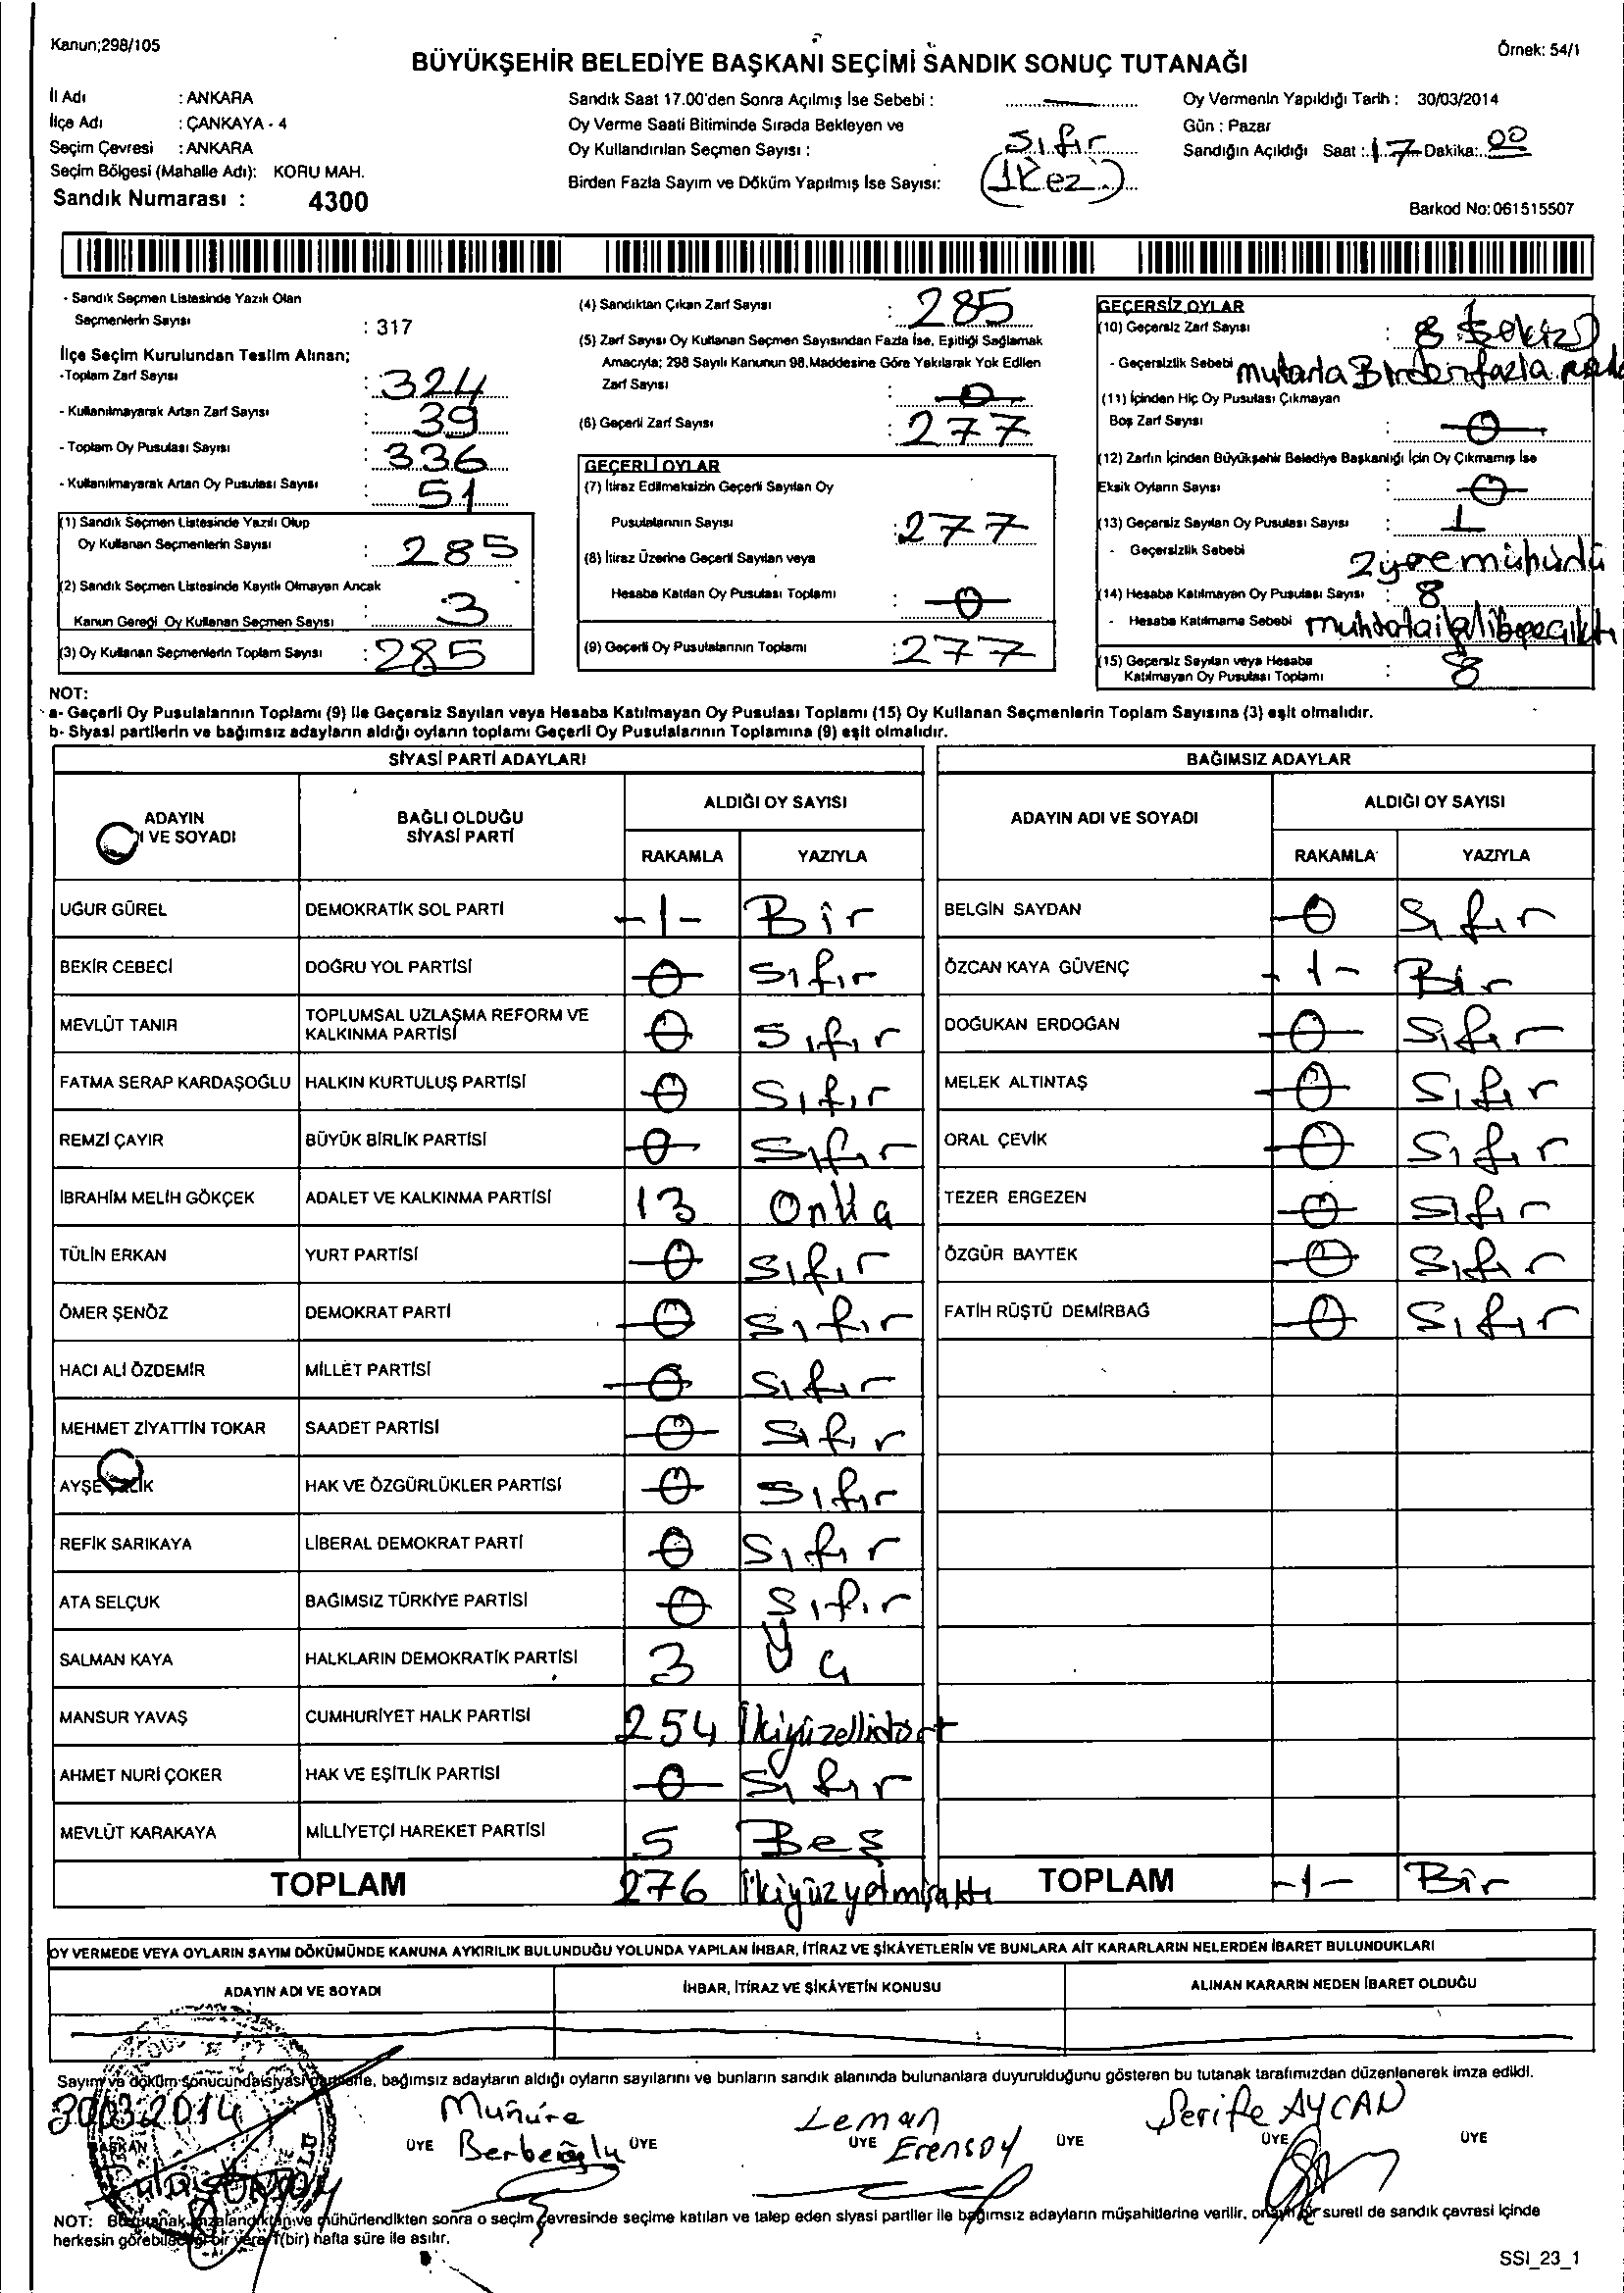 Kanun;298/105
Örnek: 54/1
BÜYÜKŞEHİR BELEDİYE BAŞKANI SEÇİMİ SANDIK SONUÇ TUTANAĞI
İl Adı : ANKARA
İlçe Adı : ÇANKAYA - 4
Seçim Çevresi : ANKARA
Seçim Bölgesi (Mahalle Adı): KORU MAH.
Sandık Numarası : 4300
Sandık Saat 17.00'den Sonra Açılmış İse Sebebi :
Oy Verme Saati Bitiminde Sırada Bekleyen ve
Oy Kullandırılan Seçmen Sayısı : Sıfır
Birden Fazla Sayım ve Döküm Yapılmış İse Sayısı: (1Kez.)
Oy Vermenin Yapıldığı Tarih : 30/03/2014
Gün : Pazar
Sandığın Açıldığı Saat : 17 Dakika: 00
Barkod No:061515507
- Sandık Seçmen Listesinde Yazılı Olan
Seçmenlerin Sayısı : 317
İlçe Seçim Kurulundan Teslim Alınan;
-Toplam Zarf Sayısı : 324
- Kullanılmayarak Artan Zarf Sayısı : 39
- Toplam Oy Pusulası Sayısı : 336
- Kullanılmayarak Artan Oy Pusulası Sayısı : 51
(1) Sandık Seçmen Listesinde Yazılı Olup
Oy Kullanan Seçmenlerin Sayısı : 285
(2) Sandık Seçmen Listesinde Kayıtlı Olmayan Ancak
Kanun Gereği Oy Kullanan Seçmen Sayısı : 3
(3) Oy Kullanan Seçmenlerin Toplam Sayısı : 285
(4) Sandıktan Çıkan Zarf Sayısı : 285
(5) Zarf Sayısı Oy Kullanan Seçmen Sayısından Fazla İse, Eşitliği Sağlamak
Amacıyla; 298 Sayılı Kanunun 98.Maddesine Göre Yakılarak Yok Edilen
Zarf Sayısı : 0
(6) Geçerli Zarf Sayısı : 277
GEÇERLİ OYLAR
(7) İtiraz Edilmeksizin Geçerli Sayılan Oy
Pusulalarının Sayısı : 277
(8) İtiraz Üzerine Geçerli Sayılan veya
Hesaba Katılan Oy Pusulası Toplamı : 0
(9) Geçerli Oy Pusulalarının Toplamı : 277
GEÇERSİZ OYLAR
(10) Geçersiz Zarf Sayısı : 8 Sekiz
- Geçersizlik Sebebi Birden fazla
(11) İçinden Hiç Oy Pusulası Çıkmayan
Boş Zarf Sayısı : 0
(12) Zarfın İçinden Büyükşehir Belediye Başkanlığı İçin Oy Çıkmamış İse
Eksik Oyların Sayısı : 0
(13) Geçersiz Sayılan Oy Pusulası Sayısı : 1
- Geçersizlik Sebebi 2 yere mühürlü
(14) Hesaba Katılmayan Oy Pusulası Sayısı : 8
- Hesaba Katılmama Sebebi
(15) Geçersiz Sayılan veya Hesaba
Katılmayan Oy Pusulası Toplamı : 8
NOT:
a- Geçerli Oy Pusulalarının Toplamı (9) ile Geçersiz Sayılan veya Hesaba Katılmayan Oy Pusulası Toplamı (15) Oy Kullanan Seçmenlerin Toplam Sayısına (3) eşit olmalıdır.
b- Siyasi partilerin ve bağımsız adayların aldığı oyların toplamı Geçerli Oy Pusulalarının Toplamına (9) eşit olmalıdır.
SİYASİ PARTİ ADAYLARI
ADAYIN
I VE SOYADI
BAĞLI OLDUĞU
SİYASİ PARTİ
ALDIĞI OY SAYISI
RAKAMLA YAZIYLA
UĞUR GÜREL DEMOKRATİK SOL PARTİ -1- Bir
BEKİR CEBECİ DOĞRU YOL PARTİSİ 0 Sıfır
MEVLÜT TANIR TOPLUMSAL UZLAŞMA REFORM VE
KALKINMA PARTİSİ 0 Sıfır
FATMA SERAP KARDAŞOĞLU HALKIN KURTULUŞ PARTİSİ 0 Sıfır
REMZİ ÇAYIR BÜYÜK BİRLİK PARTİSİ 0 Sıfır
İBRAHİM MELİH GÖKÇEK ADALET VE KALKINMA PARTİSİ 13 Onüç
TÜLİN ERKAN YURT PARTİSİ 0 Sıfır
ÖMER ŞENÖZ DEMOKRAT PARTİ 0 Sıfır
HACI ALİ ÖZDEMİR MİLLET PARTİSİ 0 Sıfır
MEHMET ZİYATTİN TOKAR SAADET PARTİSİ 0 Sıfır
AYŞE HAK VE ÖZGÜRLÜKLER PARTİSİ 0 Sıfır
REFİK SARIKAYA LİBERAL DEMOKRAT PARTİ 0 Sıfır
ATA SELÇUK BAĞIMSIZ TÜRKİYE PARTİSİ 0 Sıfır
SALMAN KAYA HALKLARIN DEMOKRATİK PARTİSİ 3 Üç
MANSUR YAVAŞ CUMHURİYET HALK PARTİSİ 254 İkiyüzellidört
AHMET NURİ ÇOKER HAK VE EŞİTLİK PARTİSİ 0 Sıfır
MEVLÜT KARAKAYA MİLLİYETÇİ HAREKET PARTİSİ 5 Beş
TOPLAM 276 İkiyüzyetmişaltı
BAĞIMSIZ ADAYLAR
ADAYIN ADI VE SOYADI
ALDIĞI OY SAYISI
RAKAMLA YAZIYLA
BELGİN SAYDAN 0 Sıfır
ÖZCAN KAYA GÜVENÇ -1- Bir
DOĞUKAN ERDOĞAN 0 Sıfır
MELEK ALTINTAŞ 0 Sıfır
ORAL ÇEVİK 0 Sıfır
TEZER ERGEZEN 0 Sıfır
ÖZGÜR BAYTEK 0 Sıfır
FATİH RÜŞTÜ DEMİRBAĞ 0 Sıfır
TOPLAM -1- Bir
OY VERMEDE VEYA OYLARIN SAYIM DÖKÜMÜNDE KANUNA AYKIRILIK BULUNDUĞU YOLUNDA YAPILAN İHBAR, İTİRAZ VE ŞİKÂYETLERİN VE BUNLARA AİT KARARLARIN NELERDEN İBARET BULUNDUKLARI
ADAYIN ADI VE SOYADI İHBAR, İTİRAZ VE ŞİKÂYETİN KONUSU ALINAN KARARIN NEDEN İBARET OLDUĞU
Sayım ve döküm sonucunda siyasi partilerle, bağımsız adayların aldığı oyların sayılarını ve bunların sandık alanında bulunanlara duyurulduğunu gösteren bu tutanak tarafımızdan düzenlenerek imza edildi.
30.03.2014 Münüre Leman Şerife AYCAN
BAŞKAN ÜYE Berberoğlu ÜYE ÜYE Erensoy ÜYE ÜYE ÜYE
NOT: Bu tutanak imzalandıktan ve mühürlendikten sonra o seçim çevresinde seçime katılan ve talep eden siyasi partiler ile bağımsız adayların müşahitlerine verilir, onaylı bir sureti de sandık çevresi içinde
herkesin görebileceği bir yere 1(bir) hafta süre ile asılır.
SSI_23_1